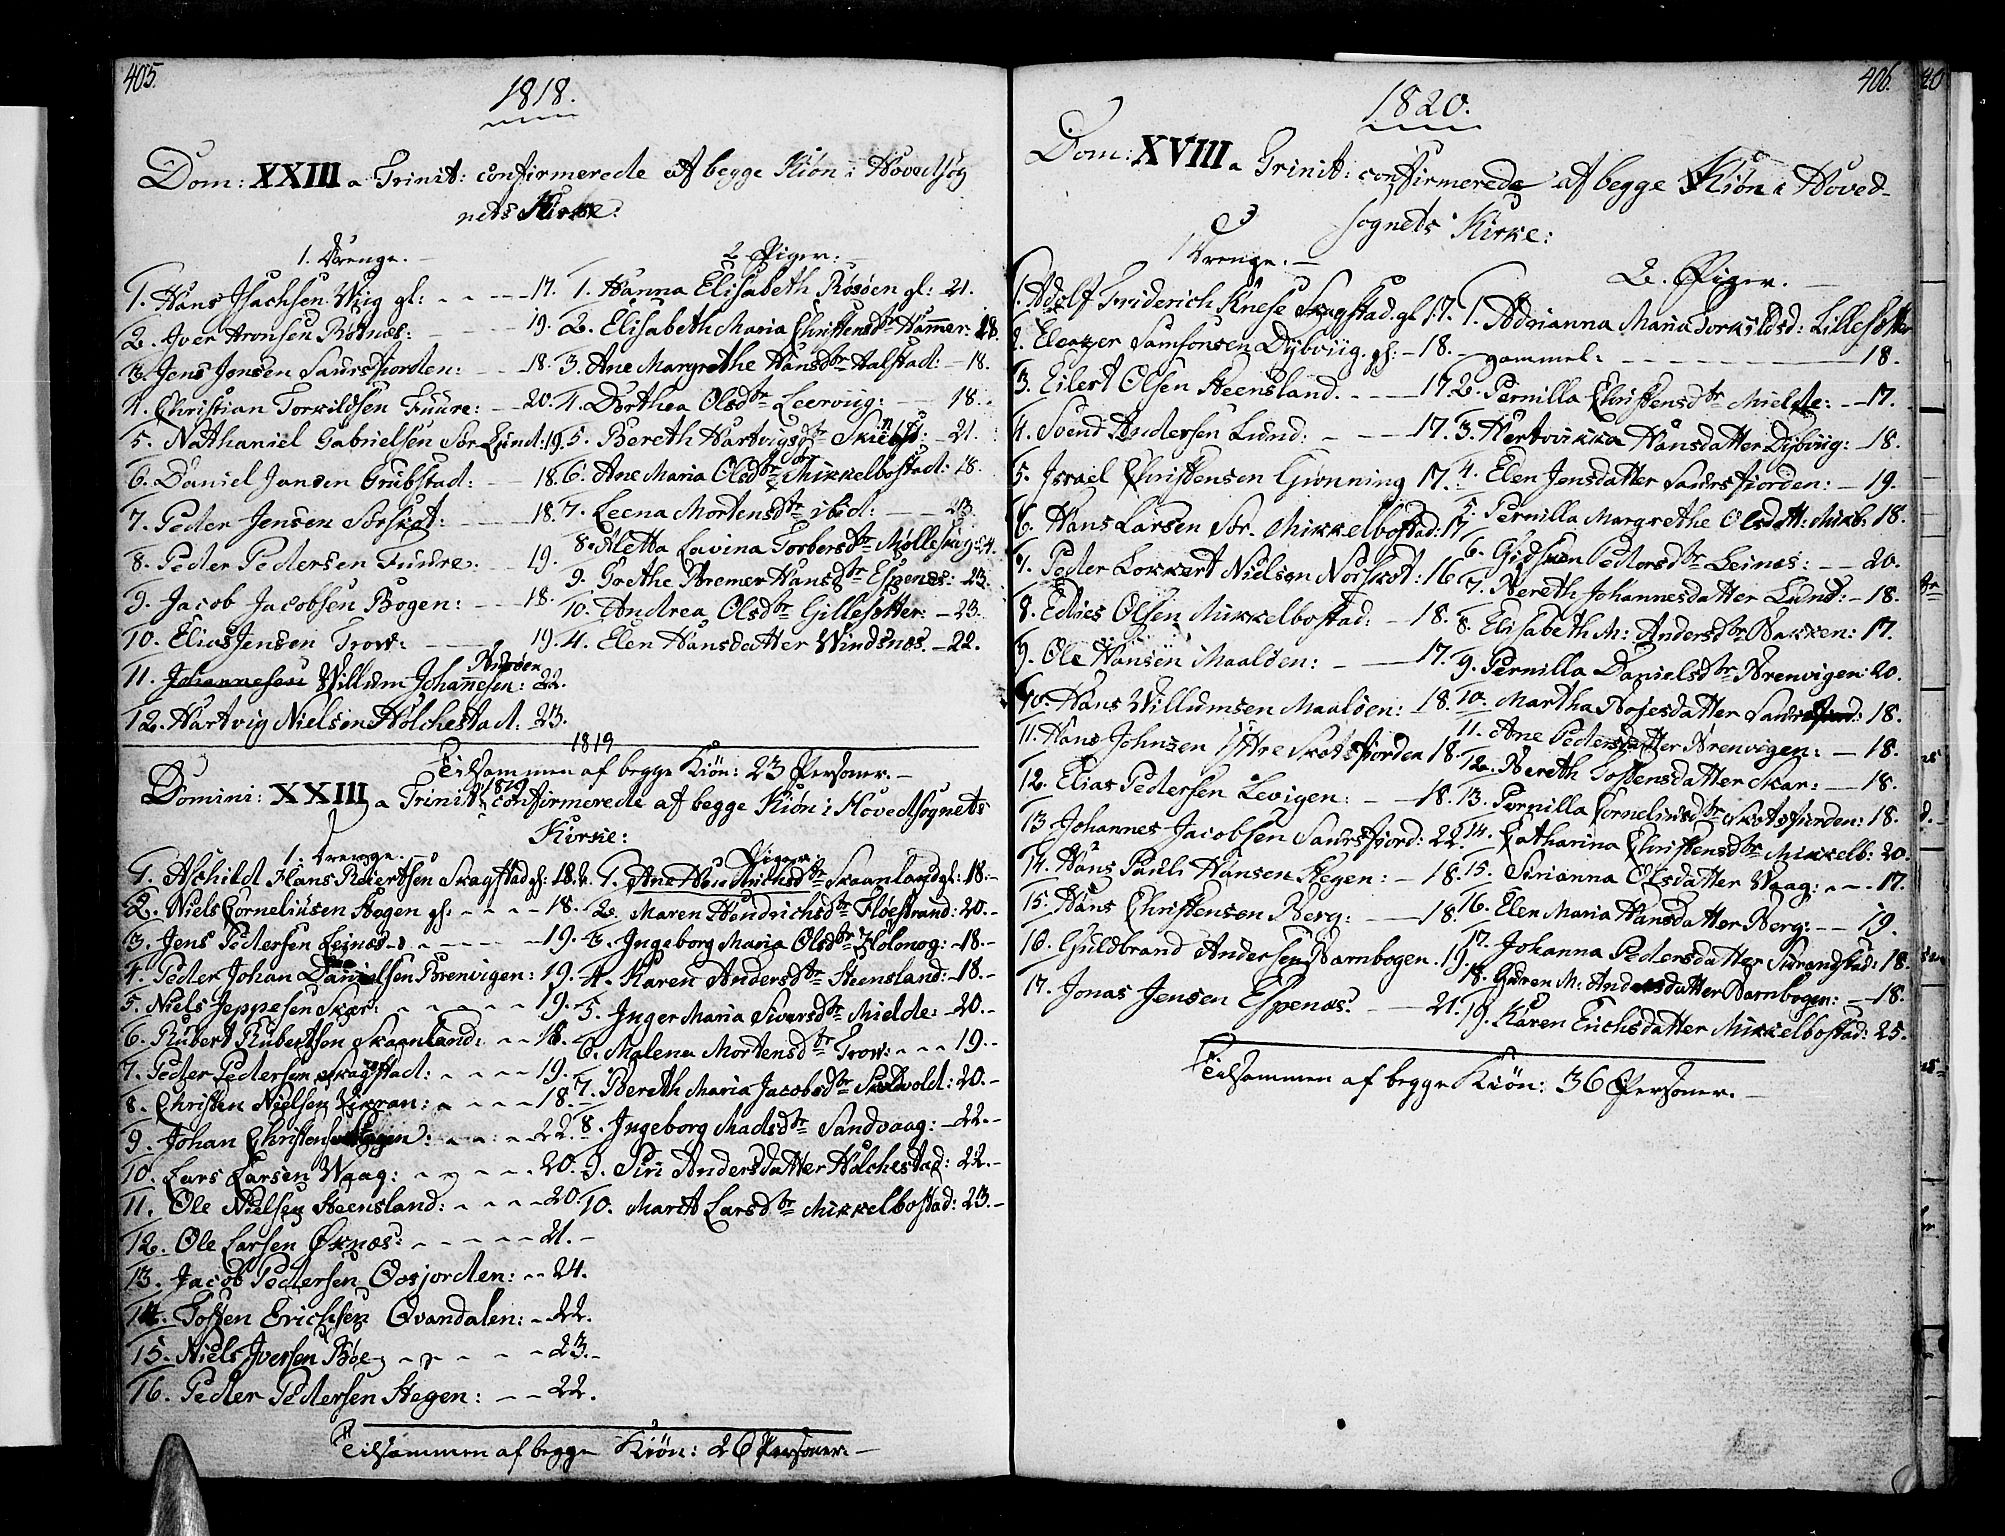 405.
1818.
Dom: XXIII a Trinit: confirmerede af begge Kiøn i Hovedsog
nets Kirke:
1. Drenge.
1. Hans Isachsen Wiig gl: 17.
2. Iver Aronsen Botnæs: 19.
3. Jens Jonsen Saursfiorden: 18.
4. Christian Torkildsen Fuure: 20.
5. Nathanael Gabrielsen Sør Lund: 19.
6. Daniel Jansen Grübstad: 18.
7. Peder Jensen Sørskot: 18.
8. Peder Pedersen Fuure. 19.
9. Jacob Jacobsen Bogen: 18.
10. Elias Jensen Trow: 19.
11. Willum Johannesen: 22.
12. Hartvig Nielsen Holchestad: 23.
2. Piger:
1. Hanna Elisabeth Rosøen gl: 21.
2. Elisabeth Maria Christensdtr Hammer: 18.
3. Ane Margrethe Hansdtr Aalstad: 18.
4. Dorthea Olsdtr Leervig: 18.
5. Bereth Hartvigsdtr 21.
6. Ane Maria Olsdtr Mikkelbostad: 18.
7. Leena Mortensdtr ibid: 23.
8. Aletta Lavina Torbersdtr
9. Grethe Bremer Hansdtr Espenes: 23.
10. Andrea Olsdtr Gillesetter: 23.
4. Elen Hansdatter Windsnæs. 22.
Tilsammen af begge Kiøn: 23 Personer.
1819
Domini: XXIII a Trinit: 1819 confirmerede af begge Kiøn i Hovedsognets
Kirke:
1. Drenge.
1. Aschild Hans Reiertsen Skagstad gl: 18.
2. Niels Cornelius​en Hegen gl: 18.
3. Jens Pedersen Leinæs 19.
4. Peder Johan Danielsen Brenvigen: 19.
5. Niels Jeppesen Skar: 19.
6. Rubert Rubertsen Skaanland: 18.
7. Peder Pedersen Skagstad: 19.
8. Christen Nielsen Vikran: 18.
9. Johan Christensen 22.
10. Lars Larsen Waag: 20.
11. Ole Nielsen Steensland: 20.
12. Ole Larsen Øknæs: 21.
13. Jacob Pedersen 24.
14. Tosten Erichsen Qvandalen: 22.
15. Niels Iversen Bøe 23.
16. Peder Pedersen Hegen: 22.
2. Piger
1. Skaanland gl: 18.
2. Maren Hendrichsdtr Fløestrand: 20.
3. Ingeborg Maria Olsdtr Holmog: 18.
4. Karen Andersdtr Steensland: 18.
5. Inger Maria Siversdtr Mielde: 20.
6. Malena Mortensdtr Trow: 19.
7. Bereth Maria Jacobsdtr 20.
8. Ingeborg Madsdtr Sandvaag: 22.
9. Siri Andersdatter Holchestad: 22.
10. Marit Larsdtr Mikkelbostad: 23.
Tilsammen af begge Kiøn: 26 Personer.
406.
1820.
Dom: XVIII a Trinit: confirmerede af begge Kiøn i Hoved-
sognets Kirke:
1 Drenge.
1. Adolf Friderich Knese Skagstad. gl 17.
2. Eleazer Samsonsen Dybviig. gl: 18.
3. Eilert Olsen Steensland. 17.
4. Svend Andersen Lund: 17.
5. Israel Christensen Grønning 17.
6. Hans Larsen Sør. Mikkelbostad: 17
7. Peder Lokkert Nielsen Norskot: 16.
8. Edies Olsen Mikkelbostad: 18.
9. Ole Hansen Maaløen: 17.
10. Hans Willumsen Maaløen: 18.
11. Hans Johnsen Ittre Skotsfiorden 18.
12. Elias Pedersen Levigen: 18.
13. Johannes Jacobsen Saursfiord: 22.
14. Hans Pauli Hansen Hegen: 18.
15. Hans Christensen Berg: 18.
16. Guldbrand Andersen Barnbogen. 19.
17. Jonas Jensen Espenæs. 21.
2. Piger.
1. Adrianna Maria Torkildsd: Lillesetter
gammel: 18.
2. Pernilla Christensdtr Mielde: 17.
3. Hertvikka Hansdatter Dybviig: 18.
4. Elen Jensdatter Saursfiorden: 19.
5. Pernilla Margrethe Olsdatt: Mikb: 18.
6. Pedersdtr Leines: 20.
7. Bereth Johannesdatter Lund: 18.
8. Elisabeth M: Andersdtr Bakken: 17.
9. Pernilla Danielsdtr Brenvigen: 20.
10. Martha 18.
11. Ane Pedersdatter Brenvigen: 18.
12. Bereth Tostensdatter Skar: 18.
13. Pernilla Corneliusdtr Skotsfiorden: 18.
14. Catharina Christensdtr Mikkelb: 20.
15. Sirianna Olsdatter Waag: 17.
16. Elen Maria Hansdatter Berg: 19.
17. Johanna Pedersdatter Strandstad: 18.
18. Guren M: Andersdatter Barnbogen: 18.
19. Karen Erichsdatter Mikkelbostad: 25.
Tilsammen af begge Kiøn: 36 Personer.